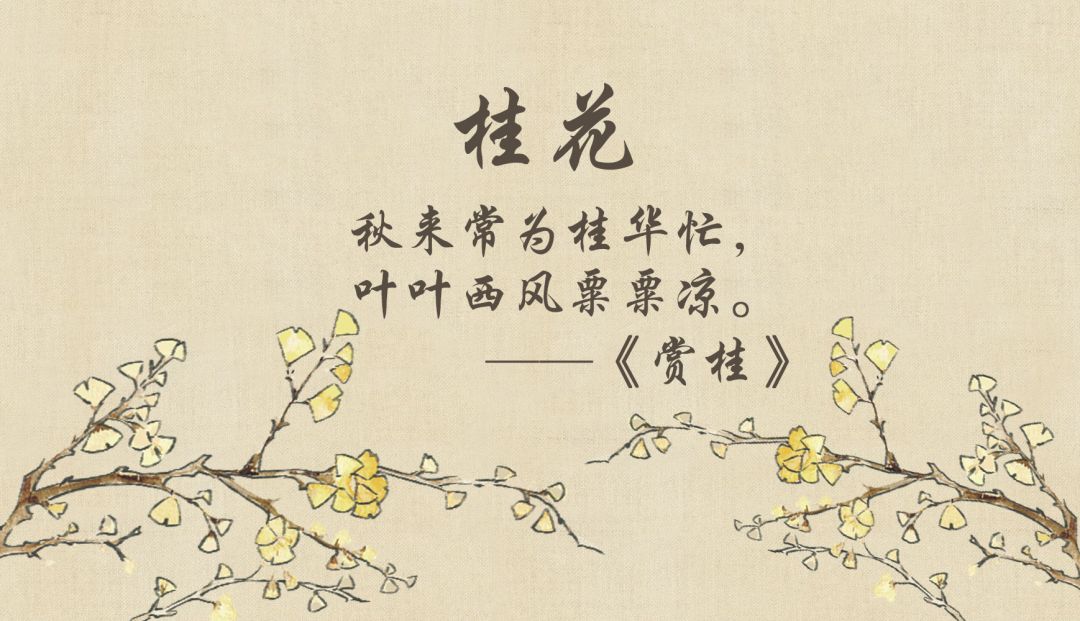 桂花
秋来常为桂华忙，
叶叶西风粟粟凉。
——《赏桂》